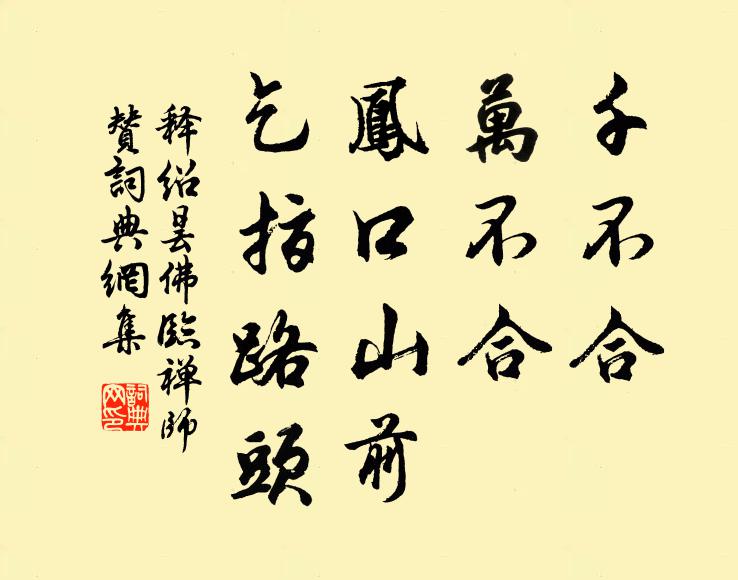 千不合
萬不合
鳳口山前
乞指路頭
釋紹曇佛臨禅師
賛詞典網集
詞典
网印